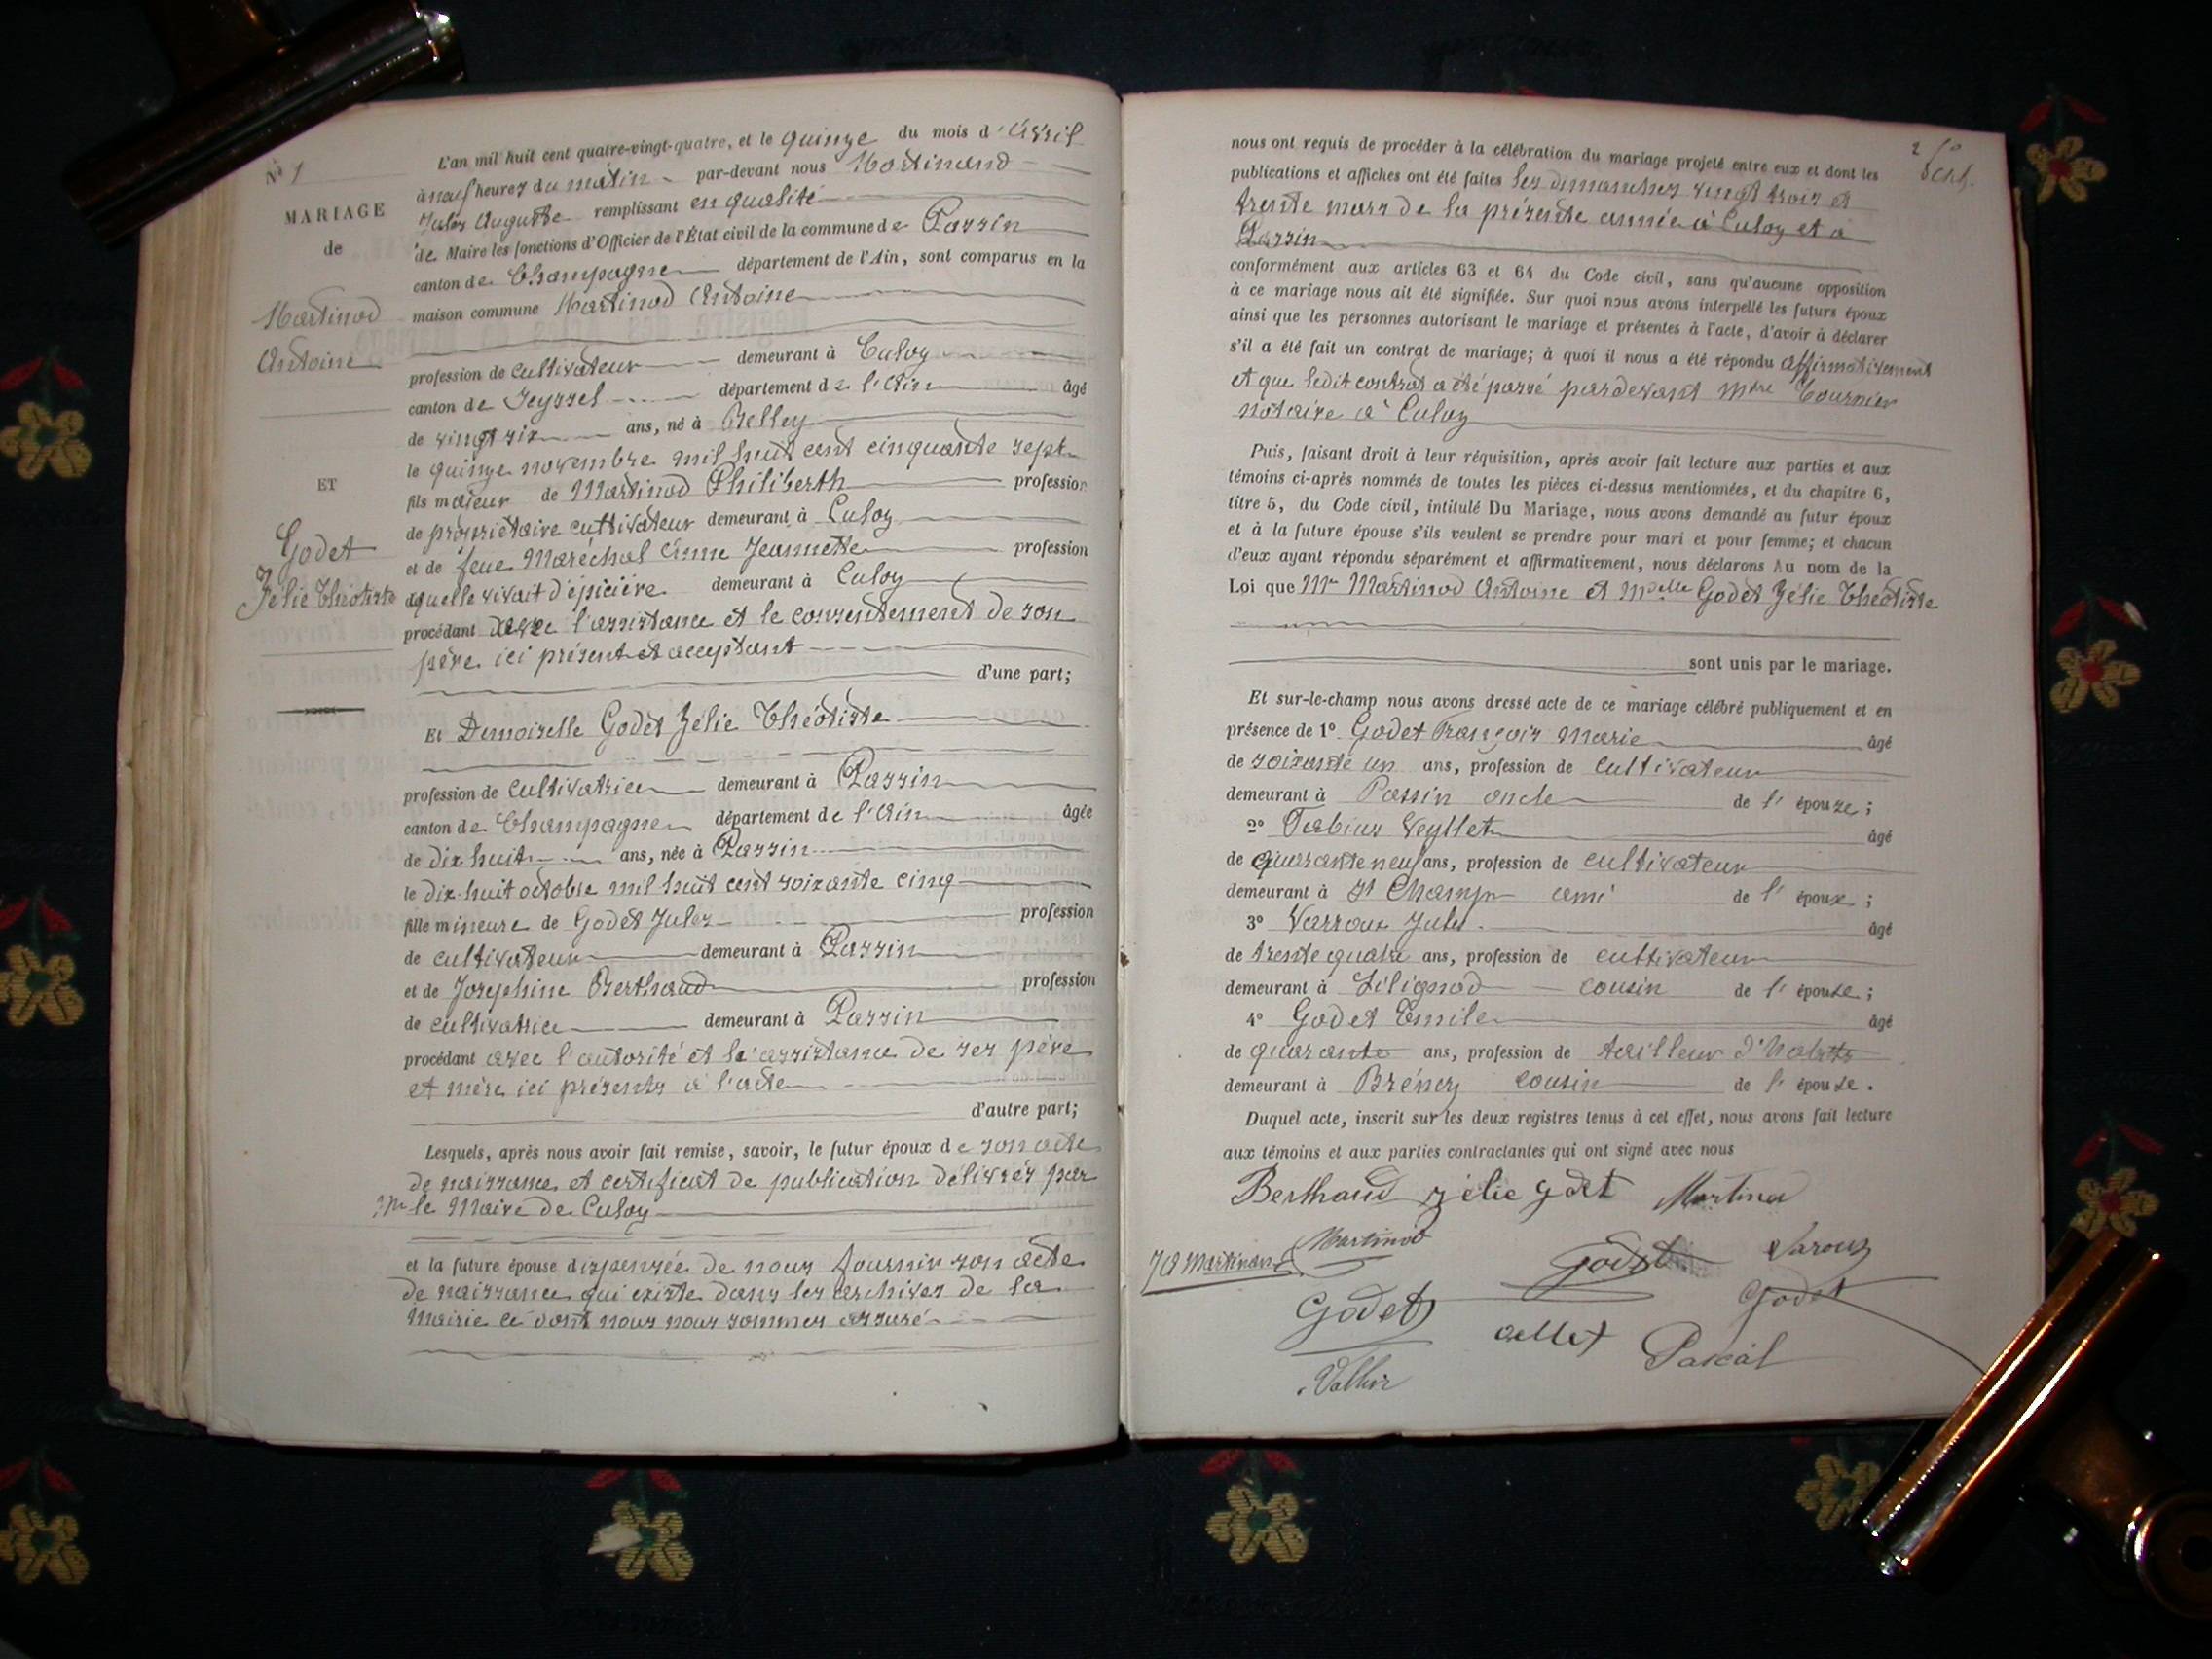 N° 1
MARIAGE
de
Martinod
Antoine
ET
Godet
Zélie Théotiste
L'an mil huit cent quatre-vingt-quatre, et le quinze du mois d'Avril
à neuf heures du matin par-devant nous Martinand
Jules Auguste remplissant en qualité
de Maire les fonctions d'Officier de l'État civil de la commune de Passin
canton de Champagne département de l'Ain, sont comparus en la
maison commune Martinod Antoine
profession de cultivateur demeurant à Culoz
canton de Seyssel département de l'Ain âgé
de vingt six ans, né à Belley
le quinze novembre mil huit cent cinquante sept
fils majeur de Martinod Philiberth profession
de propriétaire cultivateur demeurant à Culoz
et de feue Maréchal Anne Jeannette profession
laquelle vivait d'épicière demeurant à Culoz
procédant avec l'assistance et le consentement de son
père ici présent et acceptant
d'une part;
Et Demoiselle Godet Zélie Théotiste
profession de cultivatrice demeurant à Passin
canton de Champagne département de l'Ain âgée
de dix huit ans, née à Passin
le dix-huit octobre mil huit cent soixante cinq
fille mineure de Godet Jules profession
de cultivateur demeurant à Passin
et de Josephine Berthaud profession
de cultivatrice demeurant à Passin
procédant avec l'autorité et l'assistance de ses père
et mère ici présents à l'acte
d'autre part;
Lesquels, après nous avoir fait remise, savoir, le futur époux de son acte
de naissance et certificat de publication délivrés par
Mr le Maire de Culoz
et la future épouse dispensée de nous fournir son acte
de naissance qui existe dans les archives de la
Mairie ce dont nous nous sommes assuré
2
nous ont requis de procéder à la célébration du mariage projeté entre eux et dont les
publications et affiches ont été faites les dimanches vingt trois et
trente mars de la présente année à Culoz et à
Passin
conformément aux articles 63 et 64 du Code civil, sans qu'aucune opposition
à ce mariage nous ait été signifiée. Sur quoi nous avons interpellé les futurs époux
ainsi que les personnes autorisant le mariage et présentes à l'acte, d'avoir à déclarer
s'il a été fait un contrat de mariage; à quoi il nous a été répondu affirmativement
et que ledit contrat a été passé pardevant Mtre Tournier
notaire à Culoz
Puis, faisant droit à leur réquisition, après avoir fait lecture aux parties et aux
témoins ci-après nommés de toutes les pièces ci-dessus mentionnées, et du chapitre 6,
titre 5, du Code civil, intitulé Du Mariage, nous avons demandé au futur époux
et à la future épouse s'ils veulent se prendre pour mari et pour femme; et chacun
d'eux ayant répondu séparément et affirmativement, nous déclarons Au nom de la
Loi que Mr Martinod Antoine et Melle Godet Zélie Théotiste
sont unis par le mariage.
Et sur-le-champ nous avons dressé acte de ce mariage célébré publiquement et en
présence de 1° Godet François Marie âgé
de soixante un ans, profession de cultivateur
demeurant à Passin oncle de l'épouze;
2° Fabius Veyllet âgé
de quarante neuf ans, profession de cultivateur
demeurant à St Champ ami de l'époux;
3° Varroux Jules âgé
de trente quatre ans, profession de cultivateur
demeurant à Lilignod cousin de l'épouze;
4° Godet Emile âgé
de quarante ans, profession de tailleur d'habits
demeurant à Brénaz cousin de l'épouze.
Duquel acte, inscrit sur les deux registres tenus à cet effet, nous avons fait lecture
aux témoins et aux parties contractantes qui ont signé avec nous
Berthaud zélie godet Martinod
JA Martinand Martinod Godet Varoux
Godet Godet
Pascal